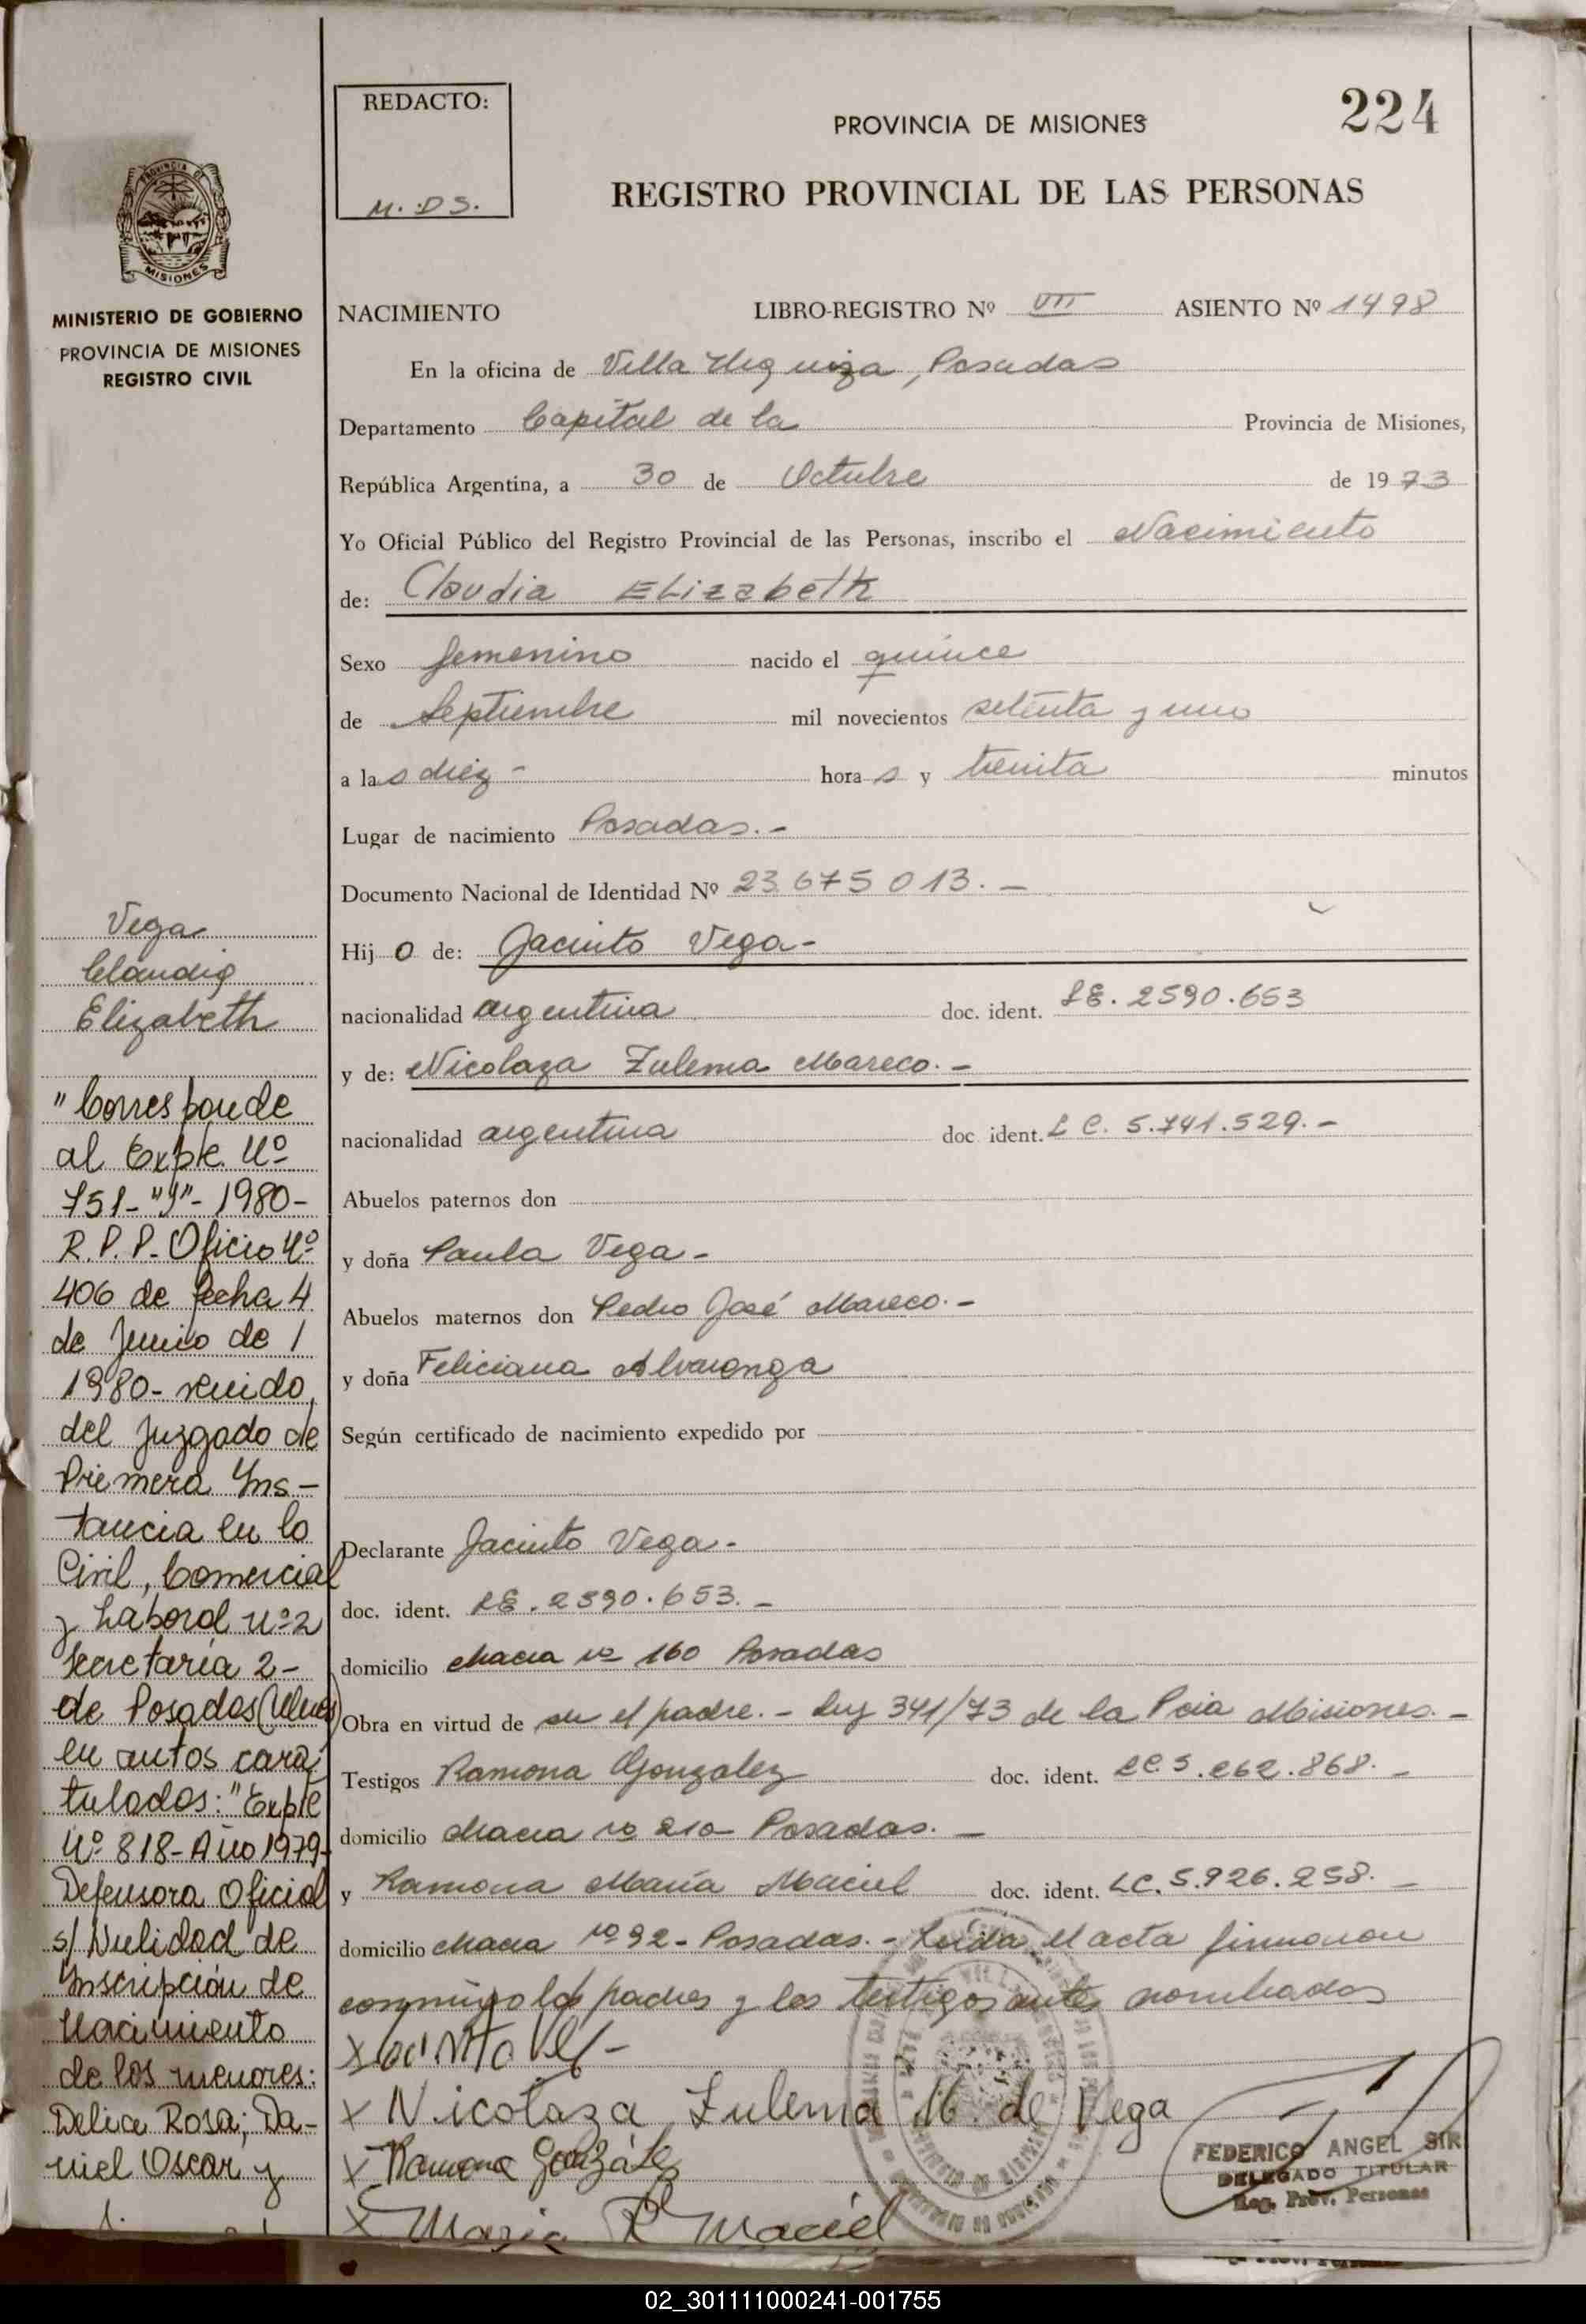 REDACTO:
M. D S.
PROVINCIA DE MISIONES
224
REGISTRO PROVINCIAL DE LAS PERSONAS
PROVINCIA DE
MISIONES
MINISTERIO DE GOBIERNO
PROVINCIA DE MISIONES
REGISTRO CIVIL
NACIMIENTO LIBRO-REGISTRO Nº VII ASIENTO Nº 1498
En la oficina de Villa Urquiza, Posadas
Departamento Capital de la Provincia de Misiones,
República Argentina, a 30 de Octubre de 1973
Yo Oficial Público del Registro Provincial de las Personas, inscribo el Nacimiento
de: Claudia Elizabeth
Sexo femenino nacido el quince
de Septiembre mil novecientos setenta y uno
a las diez - horas y treinta minutos
Lugar de nacimiento Posadas. -
Documento Nacional de Identidad Nº 23.675013. -
Hijo de: Jacinto Vega -
nacionalidad argentina doc. ident. LE. 2590.653
y de: Nicolaza Zulema Mareco. -
nacionalidad argentina doc ident. L C. 5.741.529. -
Abuelos paternos don
y doña Paula Vega -
Abuelos maternos don Pedro José Mareco. -
y doña Feliciana Alvarenga
Según certificado de nacimiento expedido por
Declarante Jacinto Vega -
doc. ident. LE. 2590.653. -
domicilio chacra nº 160 Posadas
Obra en virtud de ser el padre. - Ley 341/73 de la Pcia Misiones. -
Testigos Ramona Gonzalez doc. ident. LC. 5.262.868. -
domicilio chacra nº 210 Posadas. -
y Ramona María Maciel doc. ident. LC. 5.926.258. -
domicilio chacra nº 92 - Posadas. - Leida el acta firmaron
conmigo los padres y los testigos antes nombrados
X
X Nicolaza Zulema M. de Vega
X Ramona González
X Maria R Maciel
FEDERICO ANGEL SIR
DELEGADO TITULAR
Reg. Prov. Personas
Vega
Claudia
Elizabeth
"Corresponde
al Expte. Nº
751-"J"- 1980-
R.P.P. Oficio Nº
406 de fecha 4
de Junio de
1980- venido
del Juzgado de
Primera Ins-
tancia en lo
Civil, Comercial
y Laboral nº 2
Secretaría 2-
de Posadas (Mnes)
en autos cara-
tulados: "Expte
Nº 818-Año 1979-
Defensora Oficial
s/ Nulidad de
Inscripción de
Nacimiento
de los menores:
Delia Rosa; Da-
niel Oscar y
02_301111000241-001755